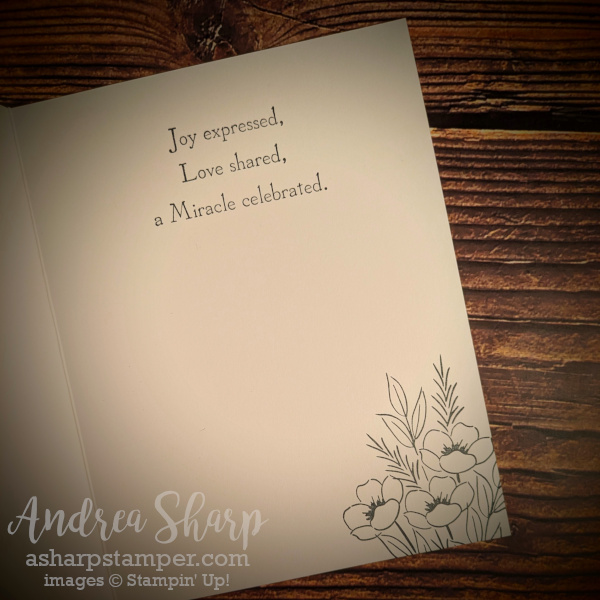 Joy expressed,
Love shared,
a Miracle celebrated.
Andrea Sharp
asharpstamper.com
images © Stampin' Up!